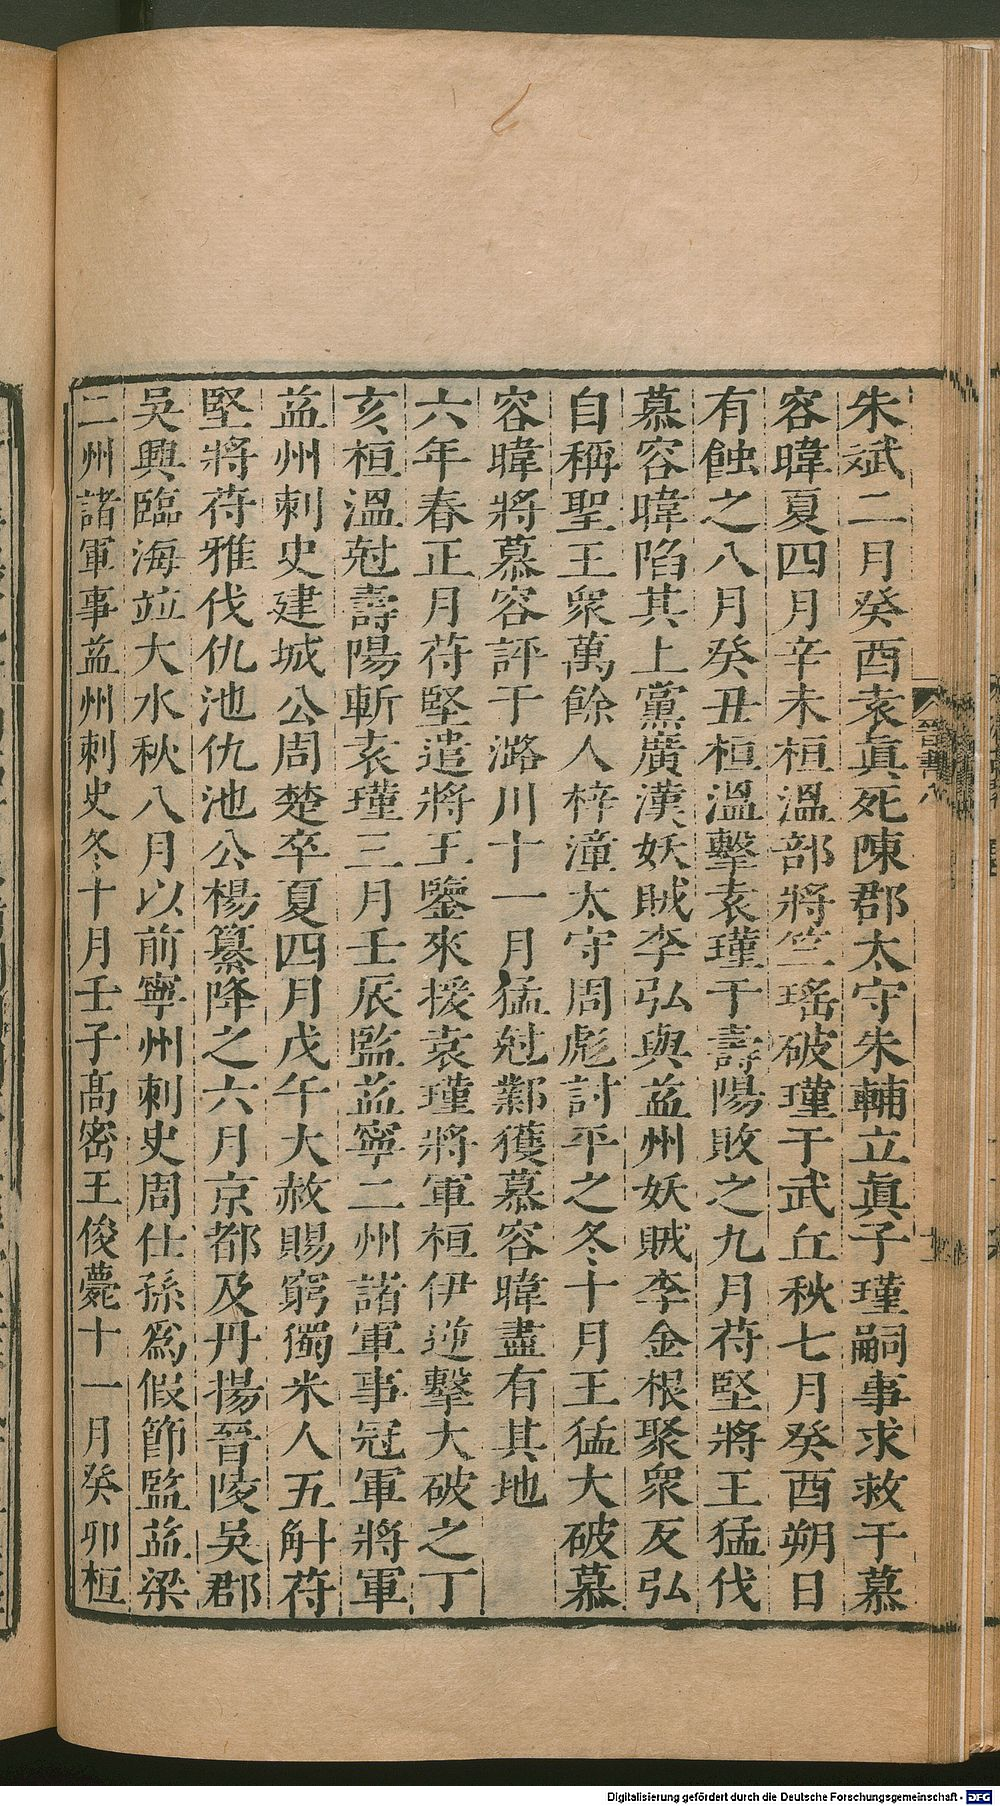 朱斌二月癸酉袁眞死陳郡太守朱輔立眞子瑾嗣事求救于慕
容暐夏四月辛未桓溫部將竺瑤破瑾于武丘秋七月癸酉朔日
有蝕之八月癸丑桓溫擊袁瑾于壽陽敗之九月苻堅將王猛伐
慕容暐陷其上黨廣漢妖賊李弘與益州妖賊李金根聚眾反弘
自稱聖王眾萬餘人梓潼太守周彪討平之冬十月王猛大破慕
容暐將慕容評于潞川十一月猛尅鄴獲慕容暐盡有其地
六年春正月苻堅遣將王鑒來援袁瑾將軍桓伊逆擊大破之丁
亥桓溫尅壽陽斬袁瑾三月壬辰監益寧二州諸軍事冠軍將軍
益州刺史建城公周楚卒夏四月戊午大赦賜窮獨米人五斛苻
堅將苻雅伐仇池仇池公楊纂降之六月京都及丹揚晉陵吳郡
吳興臨海竝大水秋八月以前寧州刺史周仕孫爲假節監益梁
二州諸軍事益州刺史冬十月壬子高密王俊薨十一月癸卯桓
晉書八
Digitalisierung gefördert durch die Deutsche Forschungsgemeinschaft - DFG